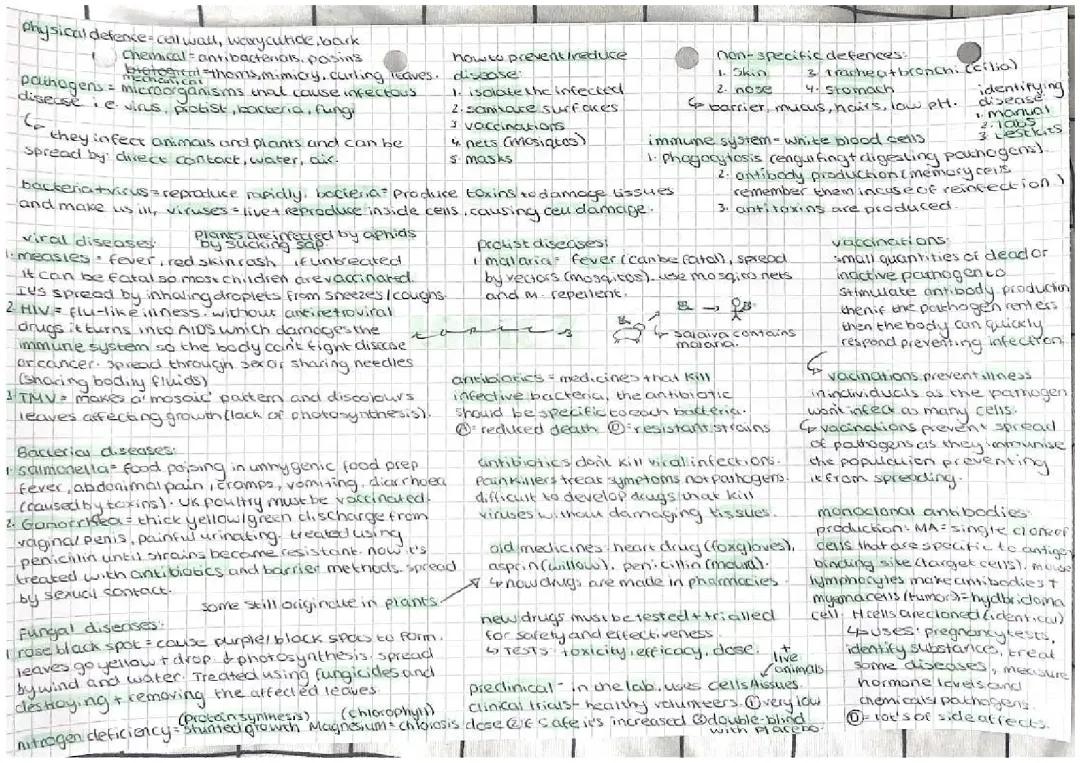 physical defence = cell wall, waxy cuticle, bark
chemical = antibacterials, posins
mechanical = thorns, mimicry, curling leaves.
pathogens = microorganisms that cause infectous
disease i.e. virus, protist, bacteria, fungi
↳ they infect animals and plants and can be
spread by: direct contact, water, air.
how to prevent/reduce
disease:
1. isolate the infected
2. sanitare surfaces
3 vaccinations
4. nets (mosiqtos)
5. masks
non-specific defences:
1. skin 3 trachea+bronchi (cilia)
2. nose 4. stomach
↳ barrier, mucus, hairs, low pH.
identifying
disease:
1. manual
2. labs
3 testkits
immune system = white blood cells
1. phagocytosis (engulfing+digesting pathogens).
2. antibody production (memory cells
remember them incase of reinfection)
3. antitoxins are produced.
bacteria+virus = reproduce rapidly. bacteria = produce toxins to damage tissues
and make us ill, viruses = live+reproduce inside cells, causing cell damage.
viral diseases:
plants are infected by aphids
by sucking sap.
1. measles = fever, red skin rash, if untreated
it can be fatal so most children are vaccinated.
It's spread by inhaling droplets from sneezes/coughs.
2. HIV = flu-like illness. without antiretroviral
drugs it turns into AIDS which damages the
immune system so the body can't fight disease
or cancer. spread through sex or sharing needles
(sharing bodily fluids)
3 TMV = makes a 'mosaic' pattern and discolours
leaves affecting growth (lack of photosynthesis).
Bacterial diseases:
1. salmonella = food poising in unhygenic food prep
fever, abdonimal pain, cramps, vomiting, diarrhoea
(caused by toxins). UK poultry must be vaccinated.
2. Gonorrhea = thick yellow/green discharge from
vaginal penis, painful urinating. treated using
penicillin until strains became resistant. now it's
treated with antibiotics and barrier methods. spread
by sexual contact.
some still originate in plants.
Fungal diseases:
1 rose black spot = cause purple/black spots to form.
leaves go yellow + drop. ↓ photosynthesis. spread
by wind and water. Treated using fungicides and
destroying + removing the affected leaves.
(protein synthesis) (chlorophyll)
nitrogen deficiency = stunted growth Magnesium = chlorosis
protist diseases:
1 malaria = fever (can be fatal), spread
by vectors (mosqitos). use mosqito nets
and m. repellent.
salaiva contains
malaria.
antibiotics = medicines that kill
infective bacteria, the antibiotic
should be specific to each bacteria.
Ⓐ = reduced death Ⓓ = resistant strains
antibiotics don't kill viral infections.
Painkillers treat symptoms not pathogens.
difficult to develop drugs that kill
viruses without damaging tissues.
old medicines: heart drug (foxgloves),
asprin (willow), penicillin (mould).
↳ now drugs are made in pharmacies.
new drugs must be tested + trialled
for safety and effectiveness.
↳ TESTS: toxicity, efficacy, dose.
+
live
animals
preclinical - in the lab, uses cells/tissues.
clinical trials - healthy volunteers. ① very low
dose ② if safe it's increased ③ double-blind
with placebo.
vaccinations:
small quantities of dead or
inactive pathogen to
stimulate antibody production
then if the pathogen renters
then the body can quickly
respond preventing infection.
↳ vacinations prevent illness
in individuals as the pathogen
wont infect as many cells.
↳ vacinations prevent spread
of pathogens as they immunise
the population preventing
it from spreading.
monoclonal antibodies:
production: MA = single clone of
cells that are specific to antigen
binding site (target cells). mouse
lymphocytes make antibodies +
myoma cells (tumor) = hydbridoma
cell. H cells are cloned (identical)
↳ uses: pregnancy tests,
identify substances, treat
some diseases, measure
hormone levels and
chemicals/pathogens.
Ⓓ = lots of side affects.